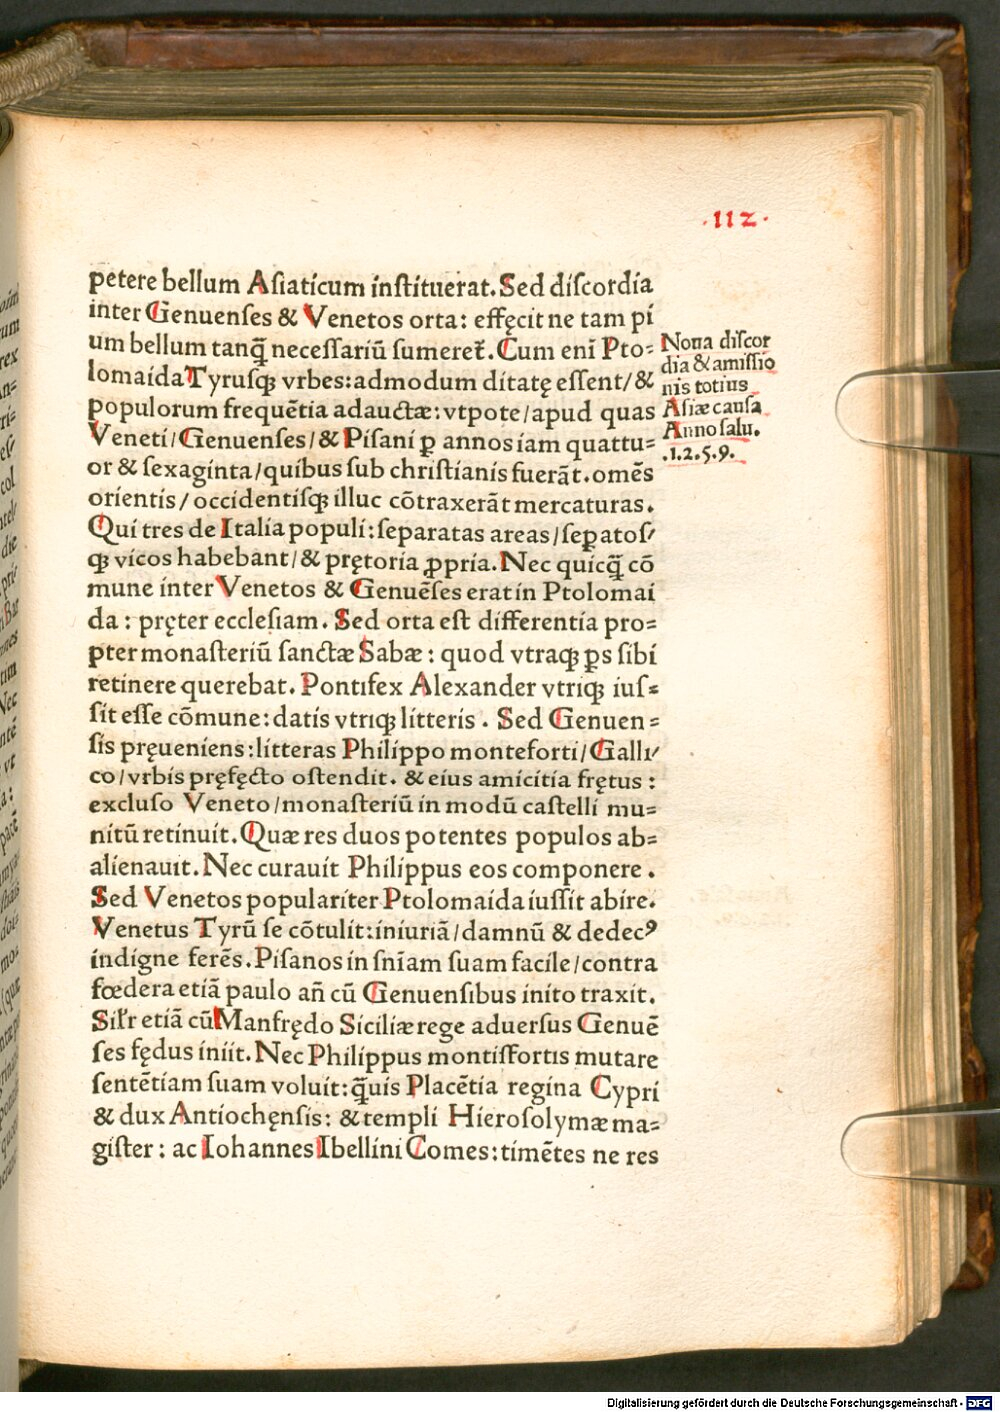 .112.
petere bellum Aſiaticum inſtituerat. Sed diſcordia
inter Genuenſes & Venetos orta: effęcit ne tam pi
um bellum tanq̃ neceſſariũ ſumeret̃. Cum eni Pto⸗
lomaida Tyruſqꝫ vrbes: admodum ditatę eſſent/ &
populorum frequẽtia adauctæ: vtpote/ apud quas
Veneti/ Genuenſes/ & Piſani ꝑ annos iam quattu⸗
or & ſexaginta/ quibus ſub chriſtianis fuerãt. omẽs
orientis/ occidentiſqꝫ illuc cõtraxerãt mercaturas.
Qui tres de Italia populi: ſeparatas areas/ ſeꝑatoſ/
qꝫ vicos habebant/ & prętoria ꝓpria. Nec quicq̃ cõ
mune inter Venetos & Genuẽſes erat in Ptolomai
da: pręter eccleſiam. Sed orta eſt differentia pro⸗
pter monaſteriũ ſanctæ Sabæ: quod vtraqꝫ ꝑs ſibi
retinere querebat. Pontifex Alexander vtriqꝫ iuſ⸗
ſit eſſe cõmune: datis vtriqꝫ litteris. Sed Genuen⸗
ſis pręueniens: litteras Philippo monteforti/ Galli/
co/ vrbis pręfęcto oſtendit. & eius amicitia frętus:
excluſo Veneto/ monaſteriũ in modũ caſtelli mu⸗
nitũ retinuit. Quæ res duos potentes populos ab⸗
alienauit. Nec curauit Philippus eos componere.
Sed Venetos populariter Ptolomaida iuſſit abire.
Venetus Tyrũ ſe cõtulit: iniuriã/ damnũ & dedecꝰ
indigne ferẽs. Piſanos in ſñiam ſuam facile/ contra
fœdera etiã paulo añ cũ Genuenſibus inito traxit.
Siłr etiã cũ Manfrędo Siciliæ rege aduerſus Genuẽ
ſes fędus iniit. Nec Philippus montiſfortis mutare
ſentẽtiam ſuam voluit: q̃uis Placẽtia regina Cypri
& dux Antiochęnſis: & templi Hieroſolymæ ma⸗
giſter: ac Iohannes Ibellini Comes: timẽtes ne res
Noua diſcor
dia & amiſſio
nis totius
Aſiæ cauſa
Anno ſalu.
.1.2.5.9.
Digitalisierung gefördert durch die Deutsche Forschungsgemeinschaft - DFG